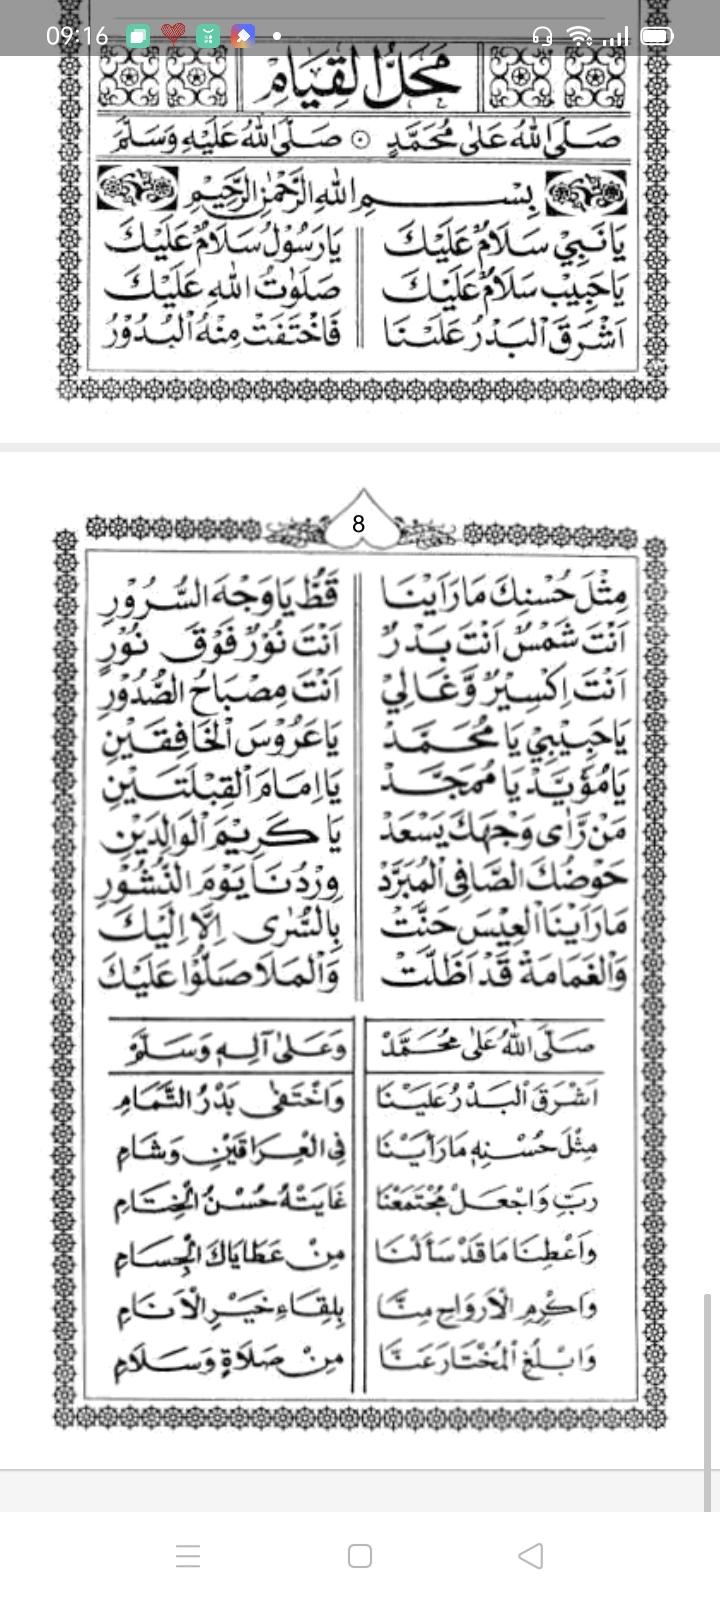 09:16
مَحَلُّ الْقِيَامِ
صَلَّى اللهُ عَلَى مُحَمَّدٍ ۞ صَلَّى اللهُ عَلَيْهِ وَسَلَّمَ
بِسْمِ اللهِ الرَّحْمٰنِ الرَّحِيْمِ
يَا نَبِيْ سَلَامٌ عَلَيْكَ يَارَسُوْلْ سَلَامٌ عَلَيْكَ
يَاحَبِيْبْ سَلَامٌ عَلَيْكَ صَلَوٰتُ اللهِ عَلَيْكَ
اَشْرَقَ الْبَدْرُ عَلَيْنَا فَاخْتَفَتْ مِنْهُ الْبُدُوْرُ
8
مِثْلَ حُسْنِكَ مَارَاَيْنَا قَطُّ يَاوَجْهَ السُّرُوْرِ
اَنْتَ شَمْسٌ اَنْتَ بَدْرٌ اَنْتَ نُوْرٌ فَوْقَ نُوْرٍ
اَنْتَ اِكْسِيْرٌ وَّغَالِيْ اَنْتَ مِصْبَاحُ الصُّدُوْرِ
يَاحَبِيْبِيْ يَا مُحَمَّدْ يَاعَرُوْسَ الْخَافِقَيْنِ
يَامُؤَيَّدْ يَا مُمَجَّدْ يَااِمَامَ الْقِبْلَتَيْنِ
مَنْ رَّاٰى وَجْهَكَ يَسْعَدْ يَا كَرِيْمَ الْوَالِدَيْنِ
حَوْضُكَ الصَّافِى الْمُبَرَّدْ وِرْدُنَا يَوْمَ النُّشُوْرِ
مَارَاَيْنَا الْعِيْسَ حَنَّتْ بِالسُّرٰى اِلَّا اِلَيْكَ
وَالْغَمَامَةْ قَدْ اَظَلَّتْ وَالْمَلَا صَلُّوْا عَلَيْكَ
صَلَّى اللهُ عَلَى مُحَمَّدْ وَعَلَى آلِهِ وَسَلَّمْ
اَشْرَقَ الْبَدْرُ عَلَيْنَا وَاخْتَفَى بَدْرُ التَّمَامِ
مِثْلَ حُسْنِهِ مَارَأَيْنَا فِى الْعِرَاقَيْنِ وَشَامِ
رَبِّ وَاجْعَلْ مُجْتَمَعْنَا غَايَتُهُ حُسْنُ الْخِتَامِ
وَاعْطِنَا مَا قَدْ سَأَلْنَا مِنْ عَطَايَاكَ الْجِسَامِ
وَاكْرِمِ الْاَرْوَاحِ مِنَّا بِلِقَاءِ خَيْرِ الْاَنَامِ
وَابْلُغِ الْمُخْتَارَ عَنَّا مِنْ صَلَاةٍ وَسَلَامِ